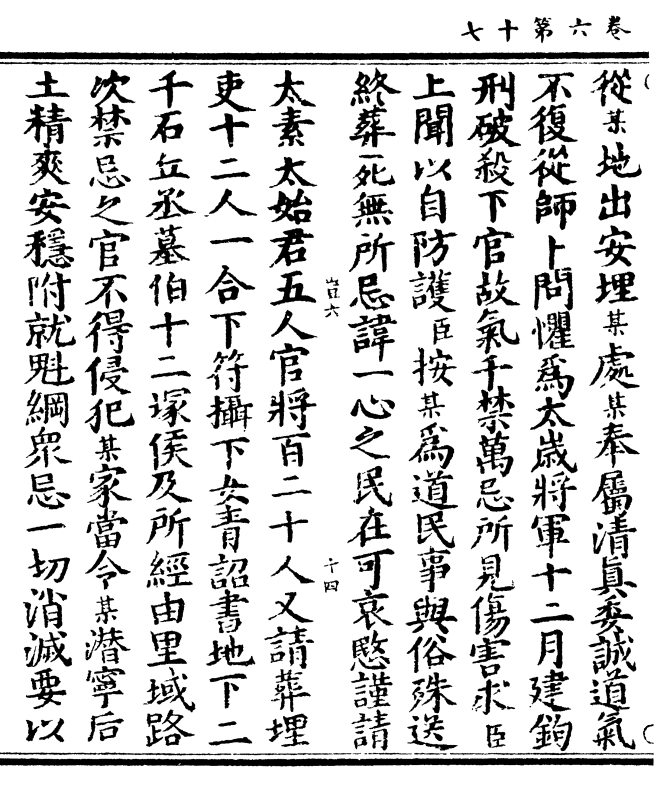 卷六第十七
從某地出安埋某處某奉屬清眞委誠道氣
不復從師卜問懼爲太歲將軍十二月建鉤
刑破殺下官故氣千禁萬忌所見傷害求臣
上聞以自防護臣按某爲道民事與俗殊送
終葬死無所忌諱一心之民在可哀愍謹請
豈六
十四
太素太始君五人官將百二十人又請葬埋
吏十二人一合下符攝下女青詔書地下二
千石丘丞墓伯十二冢侯及所經由里域路
次禁忌之官不得侵犯某家當令某潛寧后
土精爽安穩附就魁綱衆忌一切消滅要以